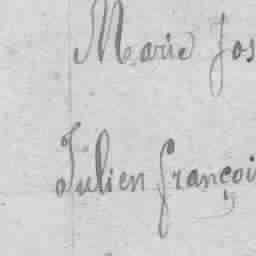 Marie Jos
Julien françoi